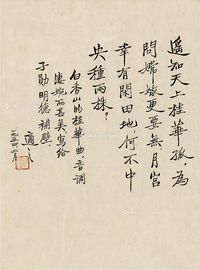 遥知天上桂華孤，為
問嫦娥更要無月宮
幸有閑田地，何不中
央種兩株？
白香山的桂華曲，音調
淒婉而甚美，寫給
子勛明德補壁
適之